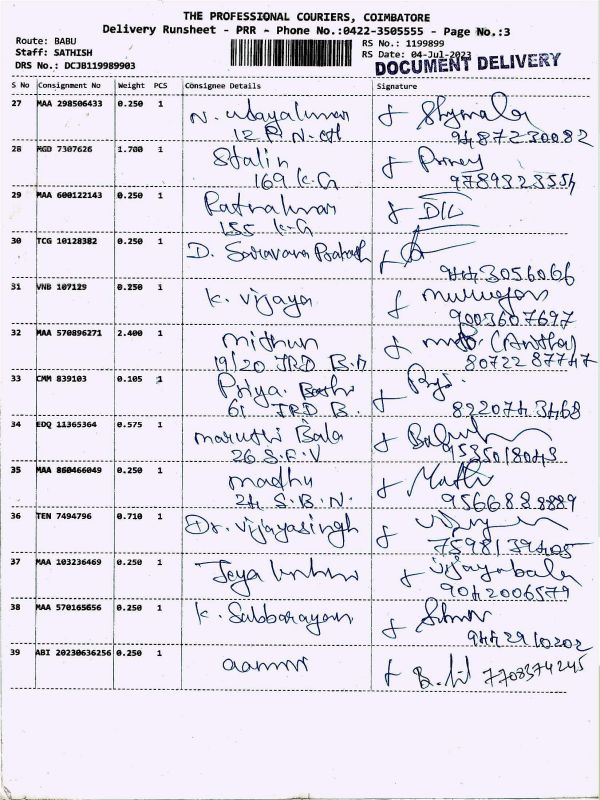 THE PROFESSIONAL COURIERS, COIMBATORE
Delivery Runsheet - PRR - Phone No.:0422-3505555 - Page No.:3
Route: BABU
Staff: SATHISH
DRS No.: DCJB119989903
RS No.: 1199899
RS Date: 04-Jul-2023
DOCUMENT DELIVERY
S No Consignment No Weight PCS Consignee Details Signature
27 MAA 298506433 0.250 1 N. udayakumar
9487230082
28 MGD 7307626 1.700 1 Stalin
169 K.G
9789323554
29 MAA 600122143 0.250 1 Ratnakumar
155 K-G
30 TCG 10128382 0.250 1 D. Saravana Prakash
9443056066
31 VNB 107129 0.250 1 K. vijaya murugan
9003607697
32 MAA 570896271 2.400 1 mithun
19/20 TRD B.
8072287747
33 CMM 839103 0.105 1 Priya
61 TRD B.
8220743468
34 EDQ 11365364 0.575 1 maruthi Bala
26 S.F.V
9535018043
35 MAA 860466049 0.250 1 madhu
24 S.B.N.
9566888889
36 TEN 7494796 0.710 1 Dr. vijayasingh
7598139405
37 MAA 103236469 0.250 1 Jeya vijayabala
9042006579
38 MAA 570165656 0.250 1 K. Subbarayan
9442910202
39 ABI 20230636256 0.250 1
7708374245